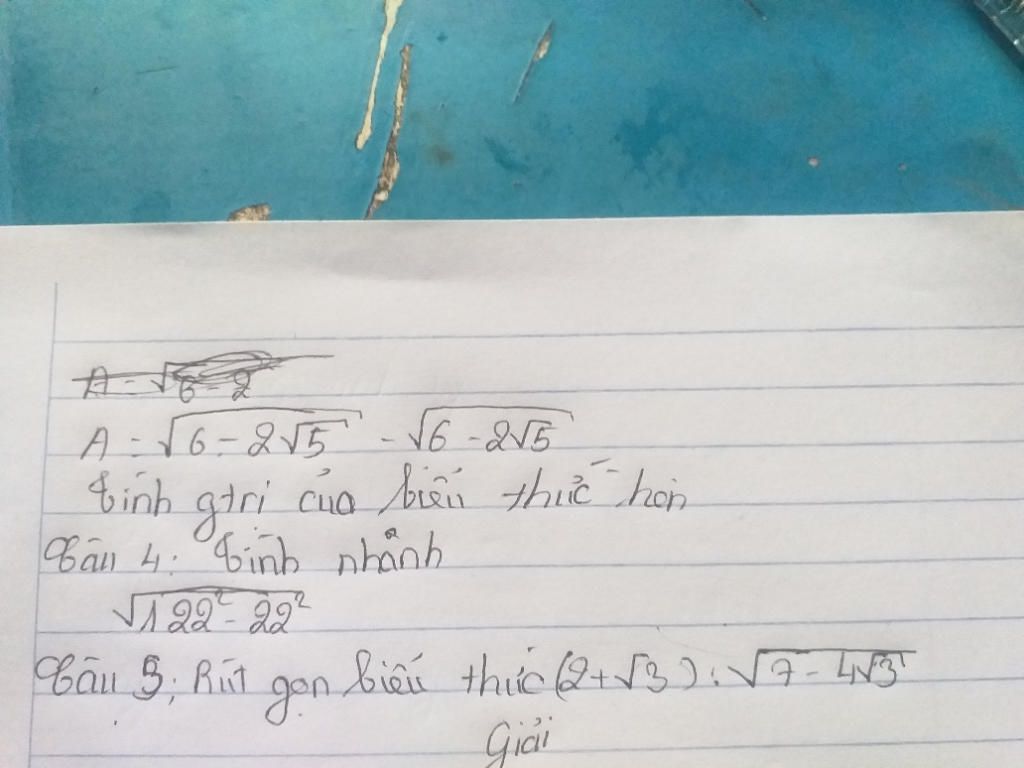 A = √(6 - 2√5) - √(6 - 2√5)
Tính gtrị của biểu thức
Câu 4: Tính nhanh
√(122² - 22²)
Câu 5: Rút gọn biểu thức (2+√3) . √(7 - 4√3)
Giải